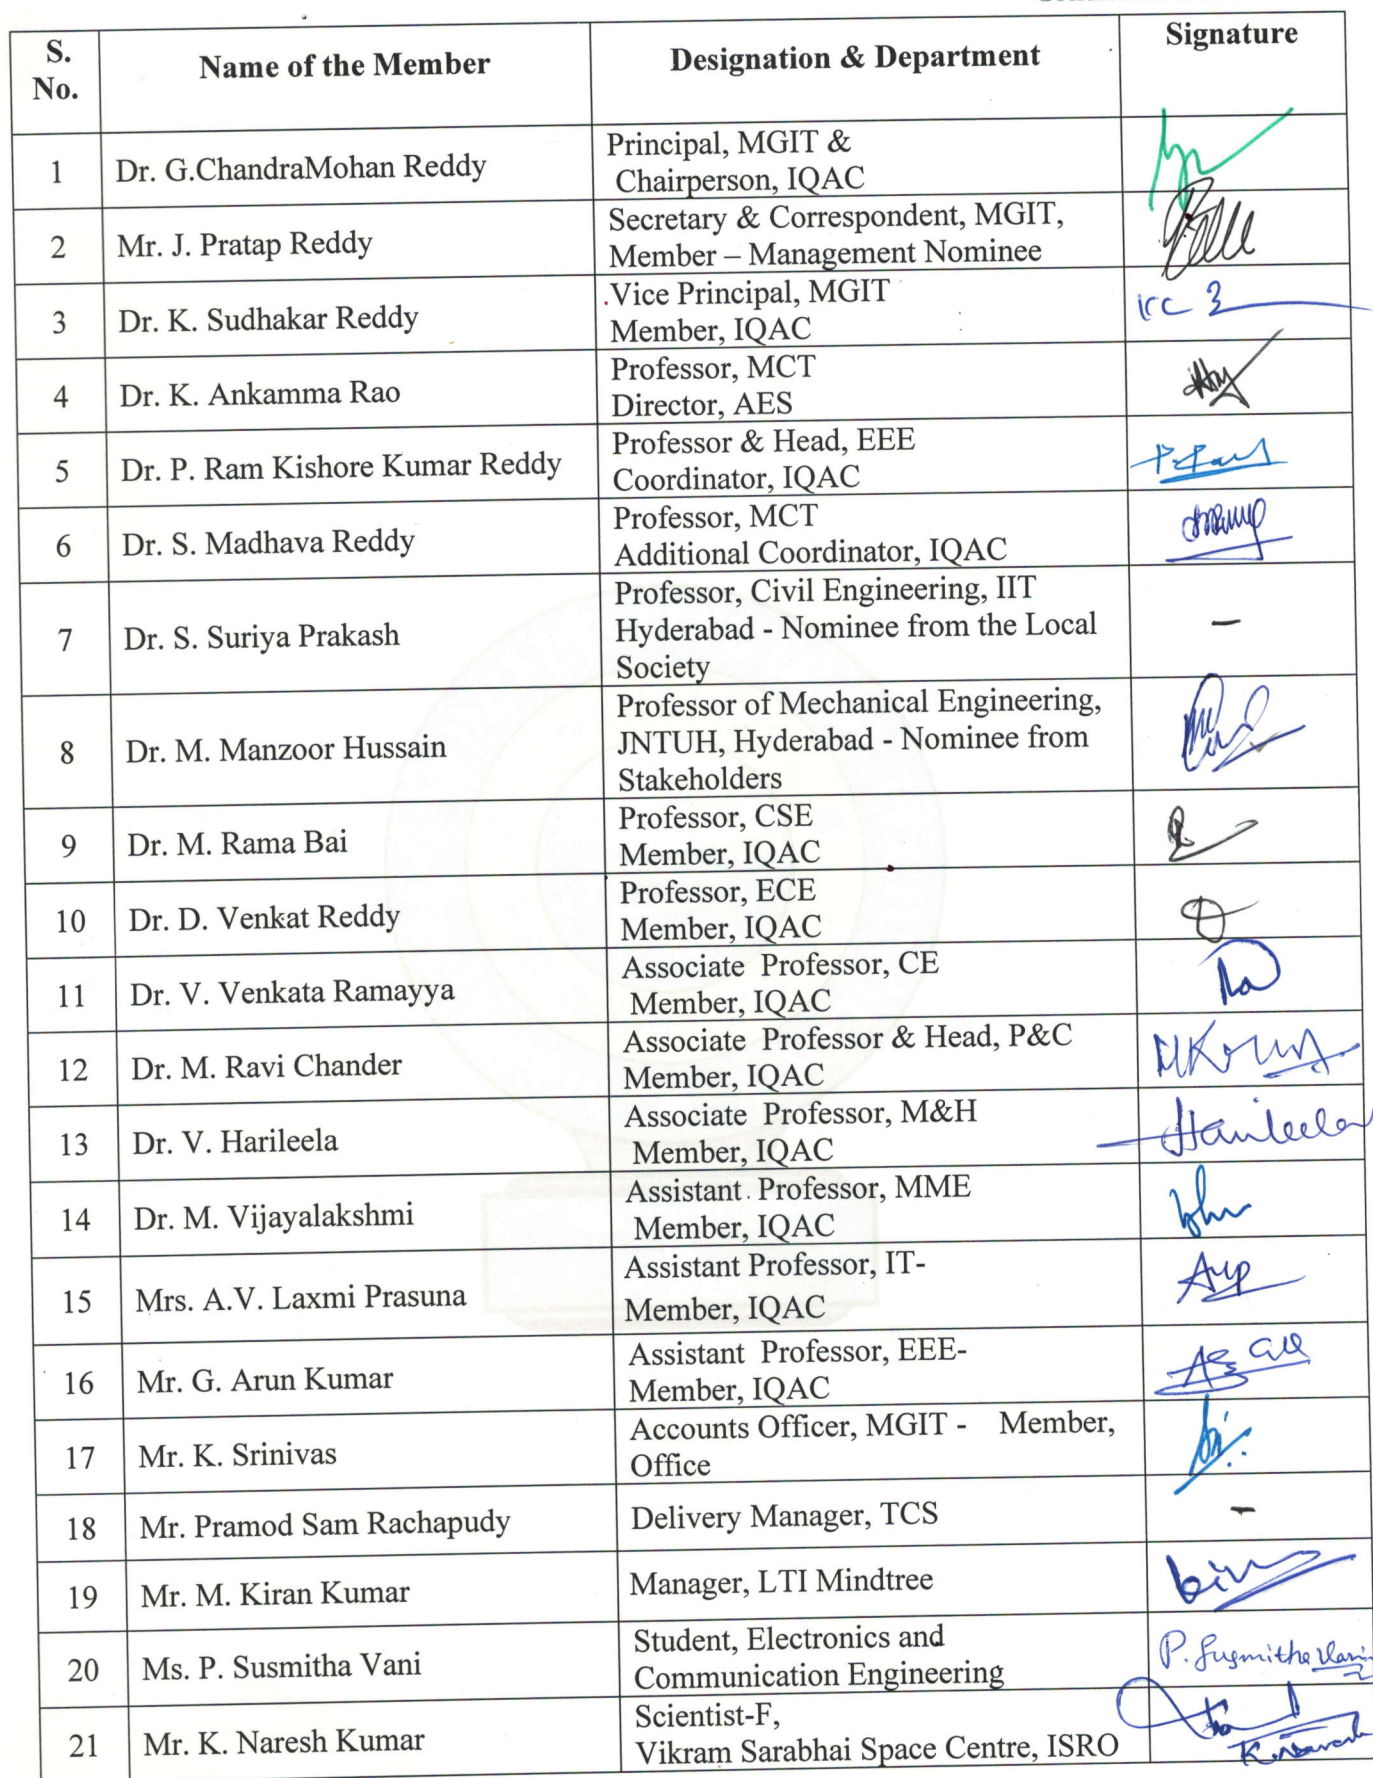 S.
No.
Name of the Member
Designation & Department
Signature
1
Dr. G.ChandraMohan Reddy
Principal, MGIT &
Chairperson, IQAC
2
Mr. J. Pratap Reddy
Secretary & Correspondent, MGIT,
Member – Management Nominee
3
Dr. K. Sudhakar Reddy
Vice Principal, MGIT
Member, IQAC
4
Dr. K. Ankamma Rao
Professor, MCT
Director, AES
5
Dr. P. Ram Kishore Kumar Reddy
Professor & Head, EEE
Coordinator, IQAC
6
Dr. S. Madhava Reddy
Professor, MCT
Additional Coordinator, IQAC
7
Dr. S. Suriya Prakash
Professor, Civil Engineering, IIT
Hyderabad - Nominee from the Local
Society
–
8
Dr. M. Manzoor Hussain
Professor of Mechanical Engineering,
JNTUH, Hyderabad - Nominee from
Stakeholders
9
Dr. M. Rama Bai
Professor, CSE
Member, IQAC
10
Dr. D. Venkat Reddy
Professor, ECE
Member, IQAC
11
Dr. V. Venkata Ramayya
Associate Professor, CE
Member, IQAC
12
Dr. M. Ravi Chander
Associate Professor & Head, P&C
Member, IQAC
13
Dr. V. Harileela
Associate Professor, M&H
Member, IQAC
Harileela
14
Dr. M. Vijayalakshmi
Assistant Professor, MME
Member, IQAC
15
Mrs. A.V. Laxmi Prasuna
Assistant Professor, IT-
Member, IQAC
16
Mr. G. Arun Kumar
Assistant Professor, EEE-
Member, IQAC
17
Mr. K. Srinivas
Accounts Officer, MGIT - Member,
Office
18
Mr. Pramod Sam Rachapudy
Delivery Manager, TCS
-
19
Mr. M. Kiran Kumar
Manager, LTI Mindtree
20
Ms. P. Susmitha Vani
Student, Electronics and
Communication Engineering
P. Susmitha Vani
21
Mr. K. Naresh Kumar
Scientist-F,
Vikram Sarabhai Space Centre, ISRO